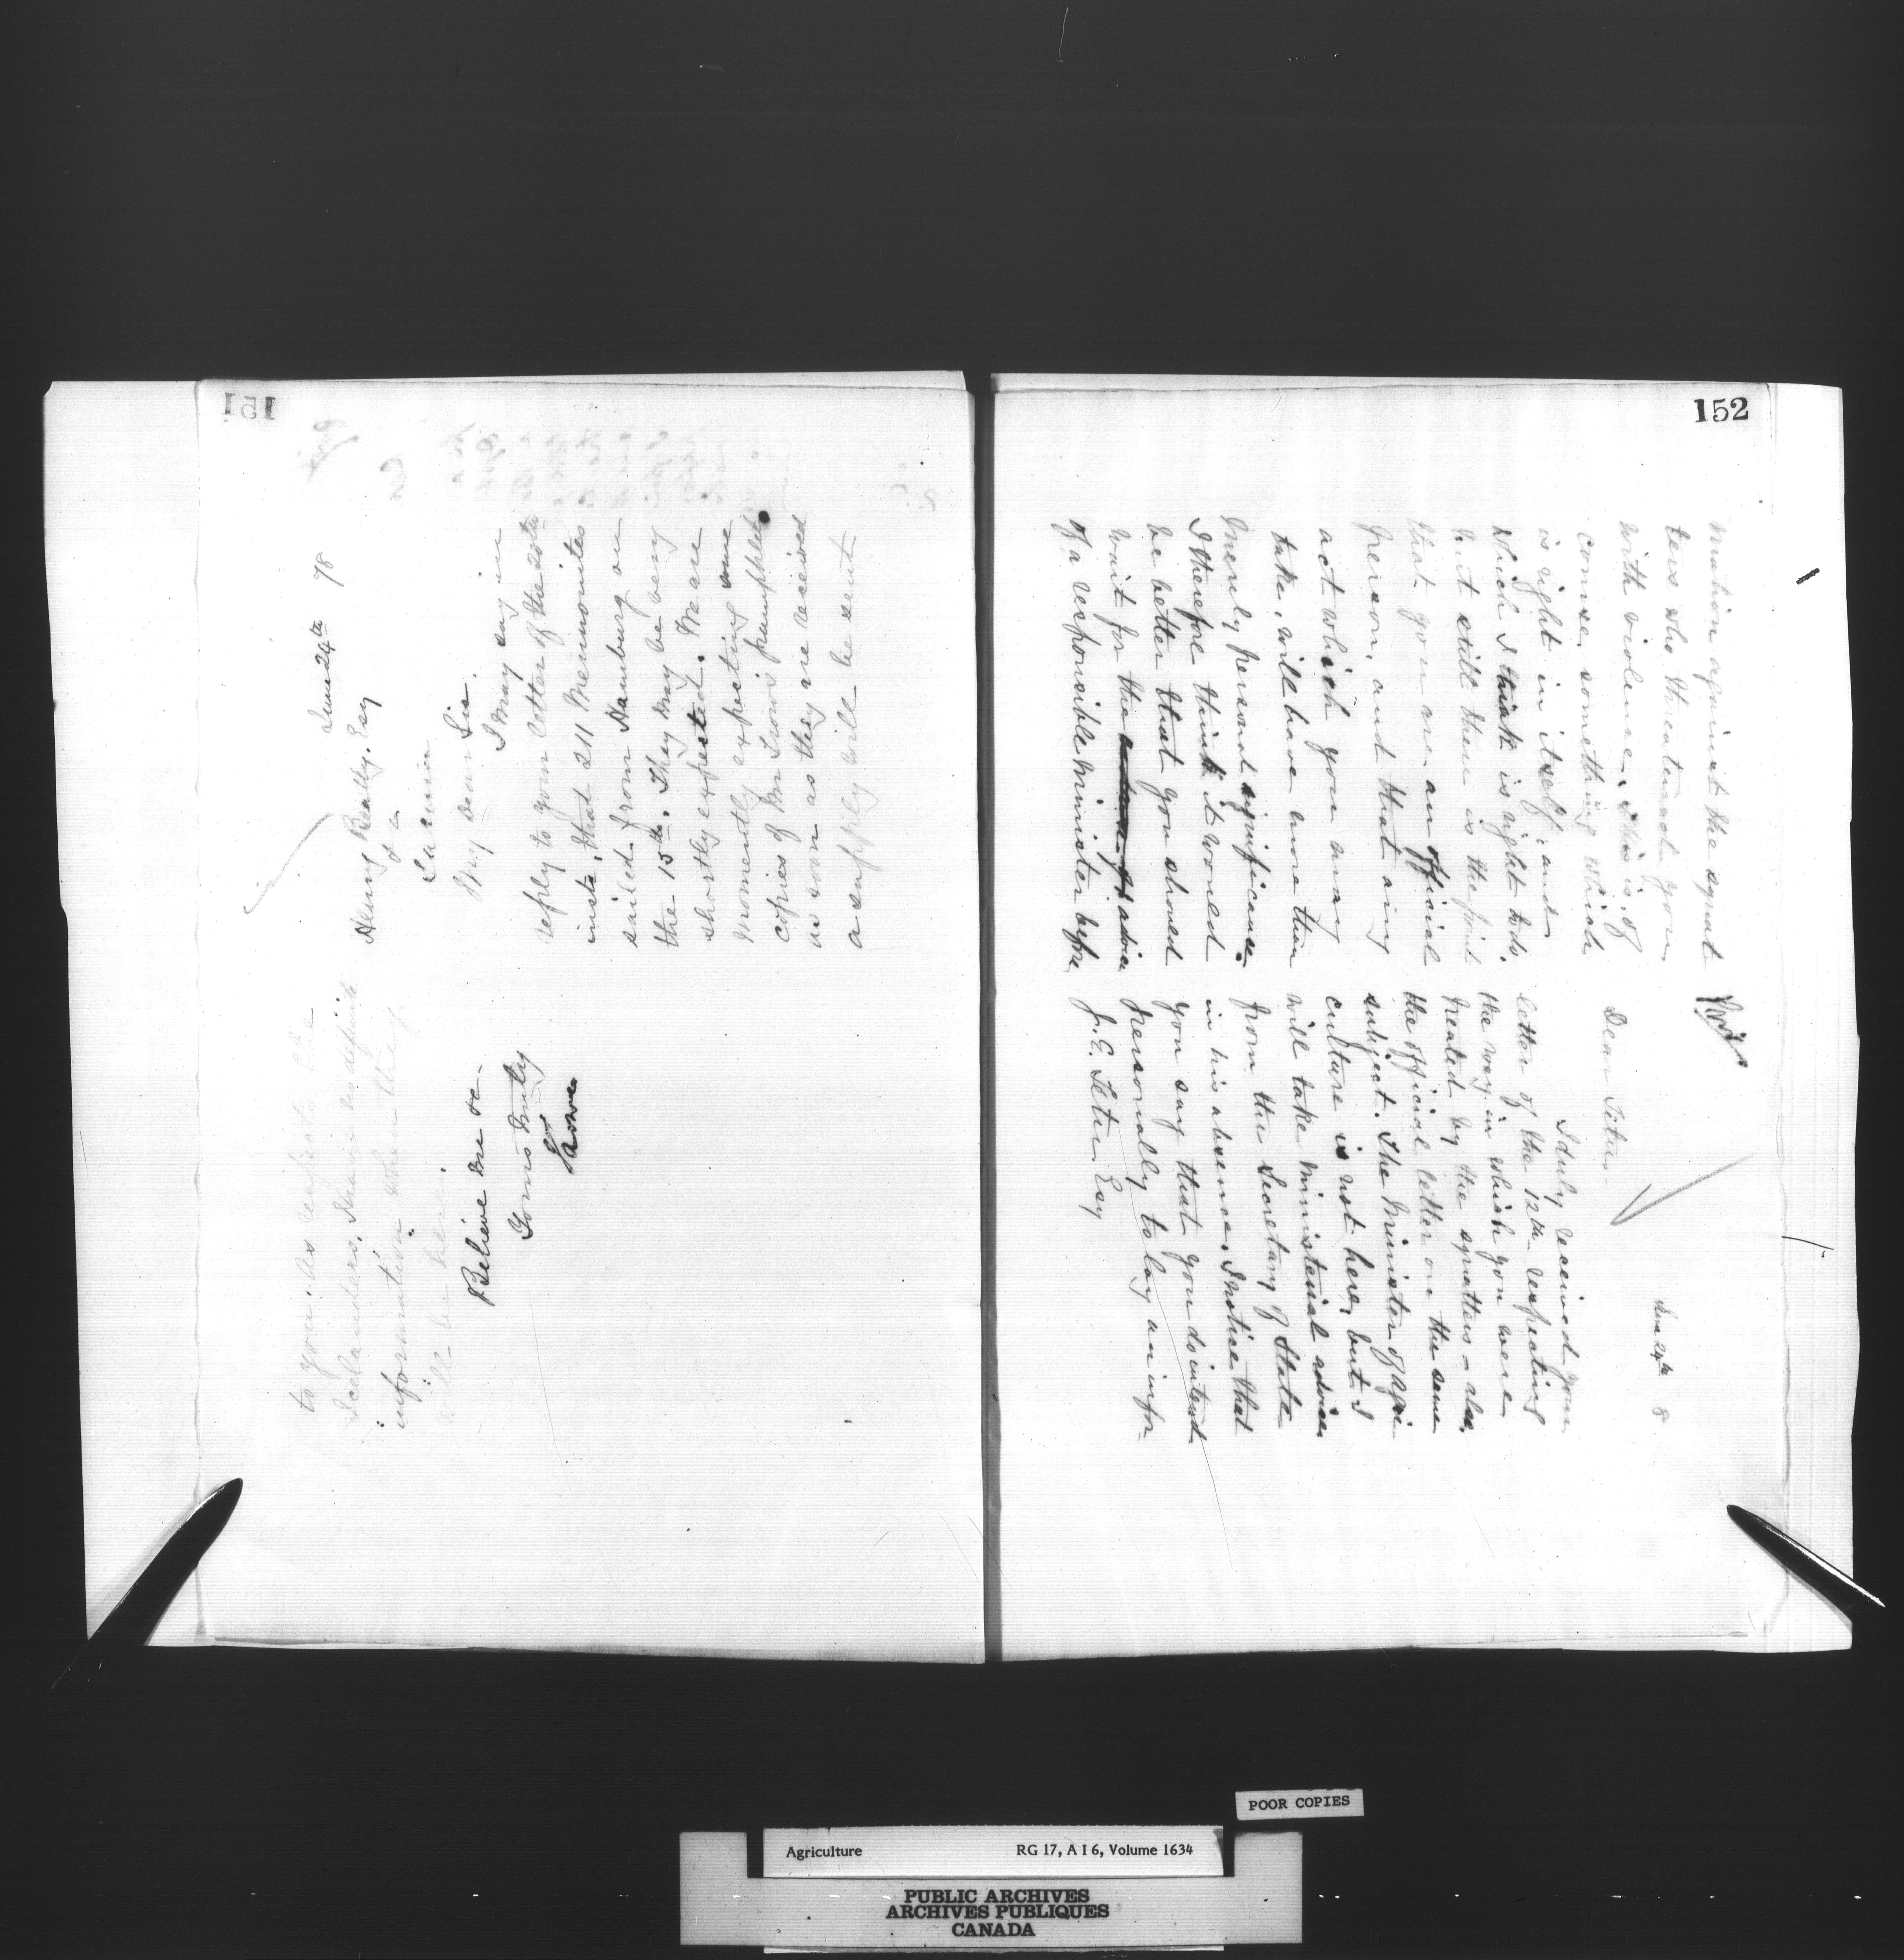 151
June 24th 78
Henry Beatty, Esq
&c
Sarnia
My dear Sir,
I may say in
reply to your letter of the 20th
inst, that 211 Mennonites
sailed from Hamburg on
the 15th. They may be very
shortly expected. We are
momently expecting some
copies of Mr Lowe's pamphlet
as soon as they are received
a supply will be sent
to you. As respects the
Icelanders, I have no definite
information when they
will be here.
Believe me &c.
Yours truly
J Lowe
152
Priv
June 24th 8
Dear
I duly received your
letter of the 12th respecting
the way in which you were
treated by the squatters – also
the official letter on the same
subject. The Minister of Agri
culture is not here, but I
will take Ministerial advice
from the Secretary of State
in his absence. I notice that
you say that you do intend
personally to lay an infor-
J. E. Esq
mation against the squat
ters who threatened you
with violence. This is, of
course, something which
is right in itself, and
which I think is right to do.
but still there is the point
that you are an official
person, and that any
act which you may
take, will have more than
merely personal significance.
I therefore think it would
be better that you should
wait for the advice
of a responsible Minister before
POOR COPIES
Agriculture RG 17, A I 6, Volume 1634
PUBLIC ARCHIVES
ARCHIVES PUBLIQUES
CANADA